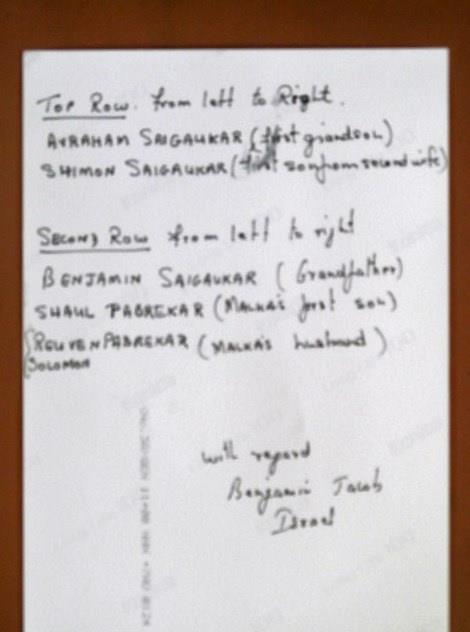 TOP ROW. from left to Right.
AVRAHAM SAIGAUKAR (first grandson)
SHIMON SAIGAUKAR (first son from second wife)
SECOND ROW from left to right
BENJAMIN SAIGAUKAR (Grandfather)
SHAUL PABREKAR (MALKA'S first son)
REUVEN PABREKAR (MALKA'S husband)
SOLOMON
with regard
Benjamin Jacob
Israel